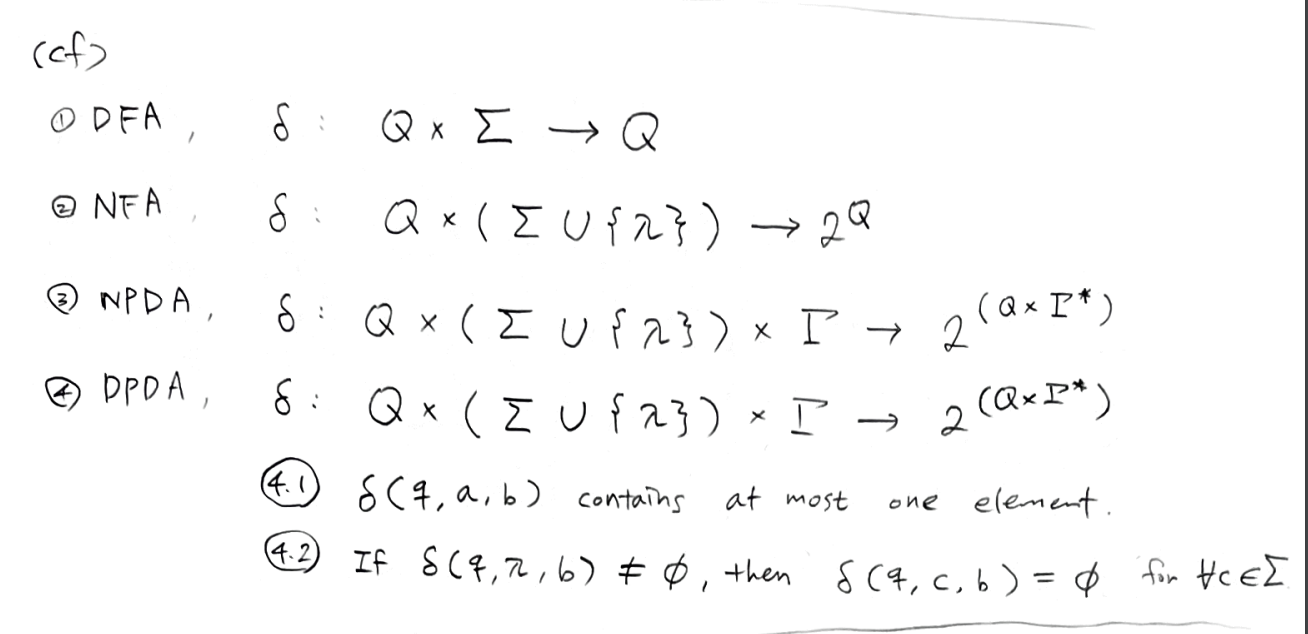 (cf)
① DFA, δ : Q × Σ → Q
② NFA, δ : Q × ( Σ ∪ {λ} ) → 2^Q
③ NPDA, δ : Q × ( Σ ∪ {λ} ) × Γ → 2^(Q × Γ*)
④ DPDA, δ : Q × ( Σ ∪ {λ} ) × Γ → 2^(Q × Γ*)
4.1 δ(q, a, b) contains at most one element.
4.2 If δ(q, λ, b) ≠ ϕ, then δ(q, c, b) = ϕ for ∀c ∈ Σ